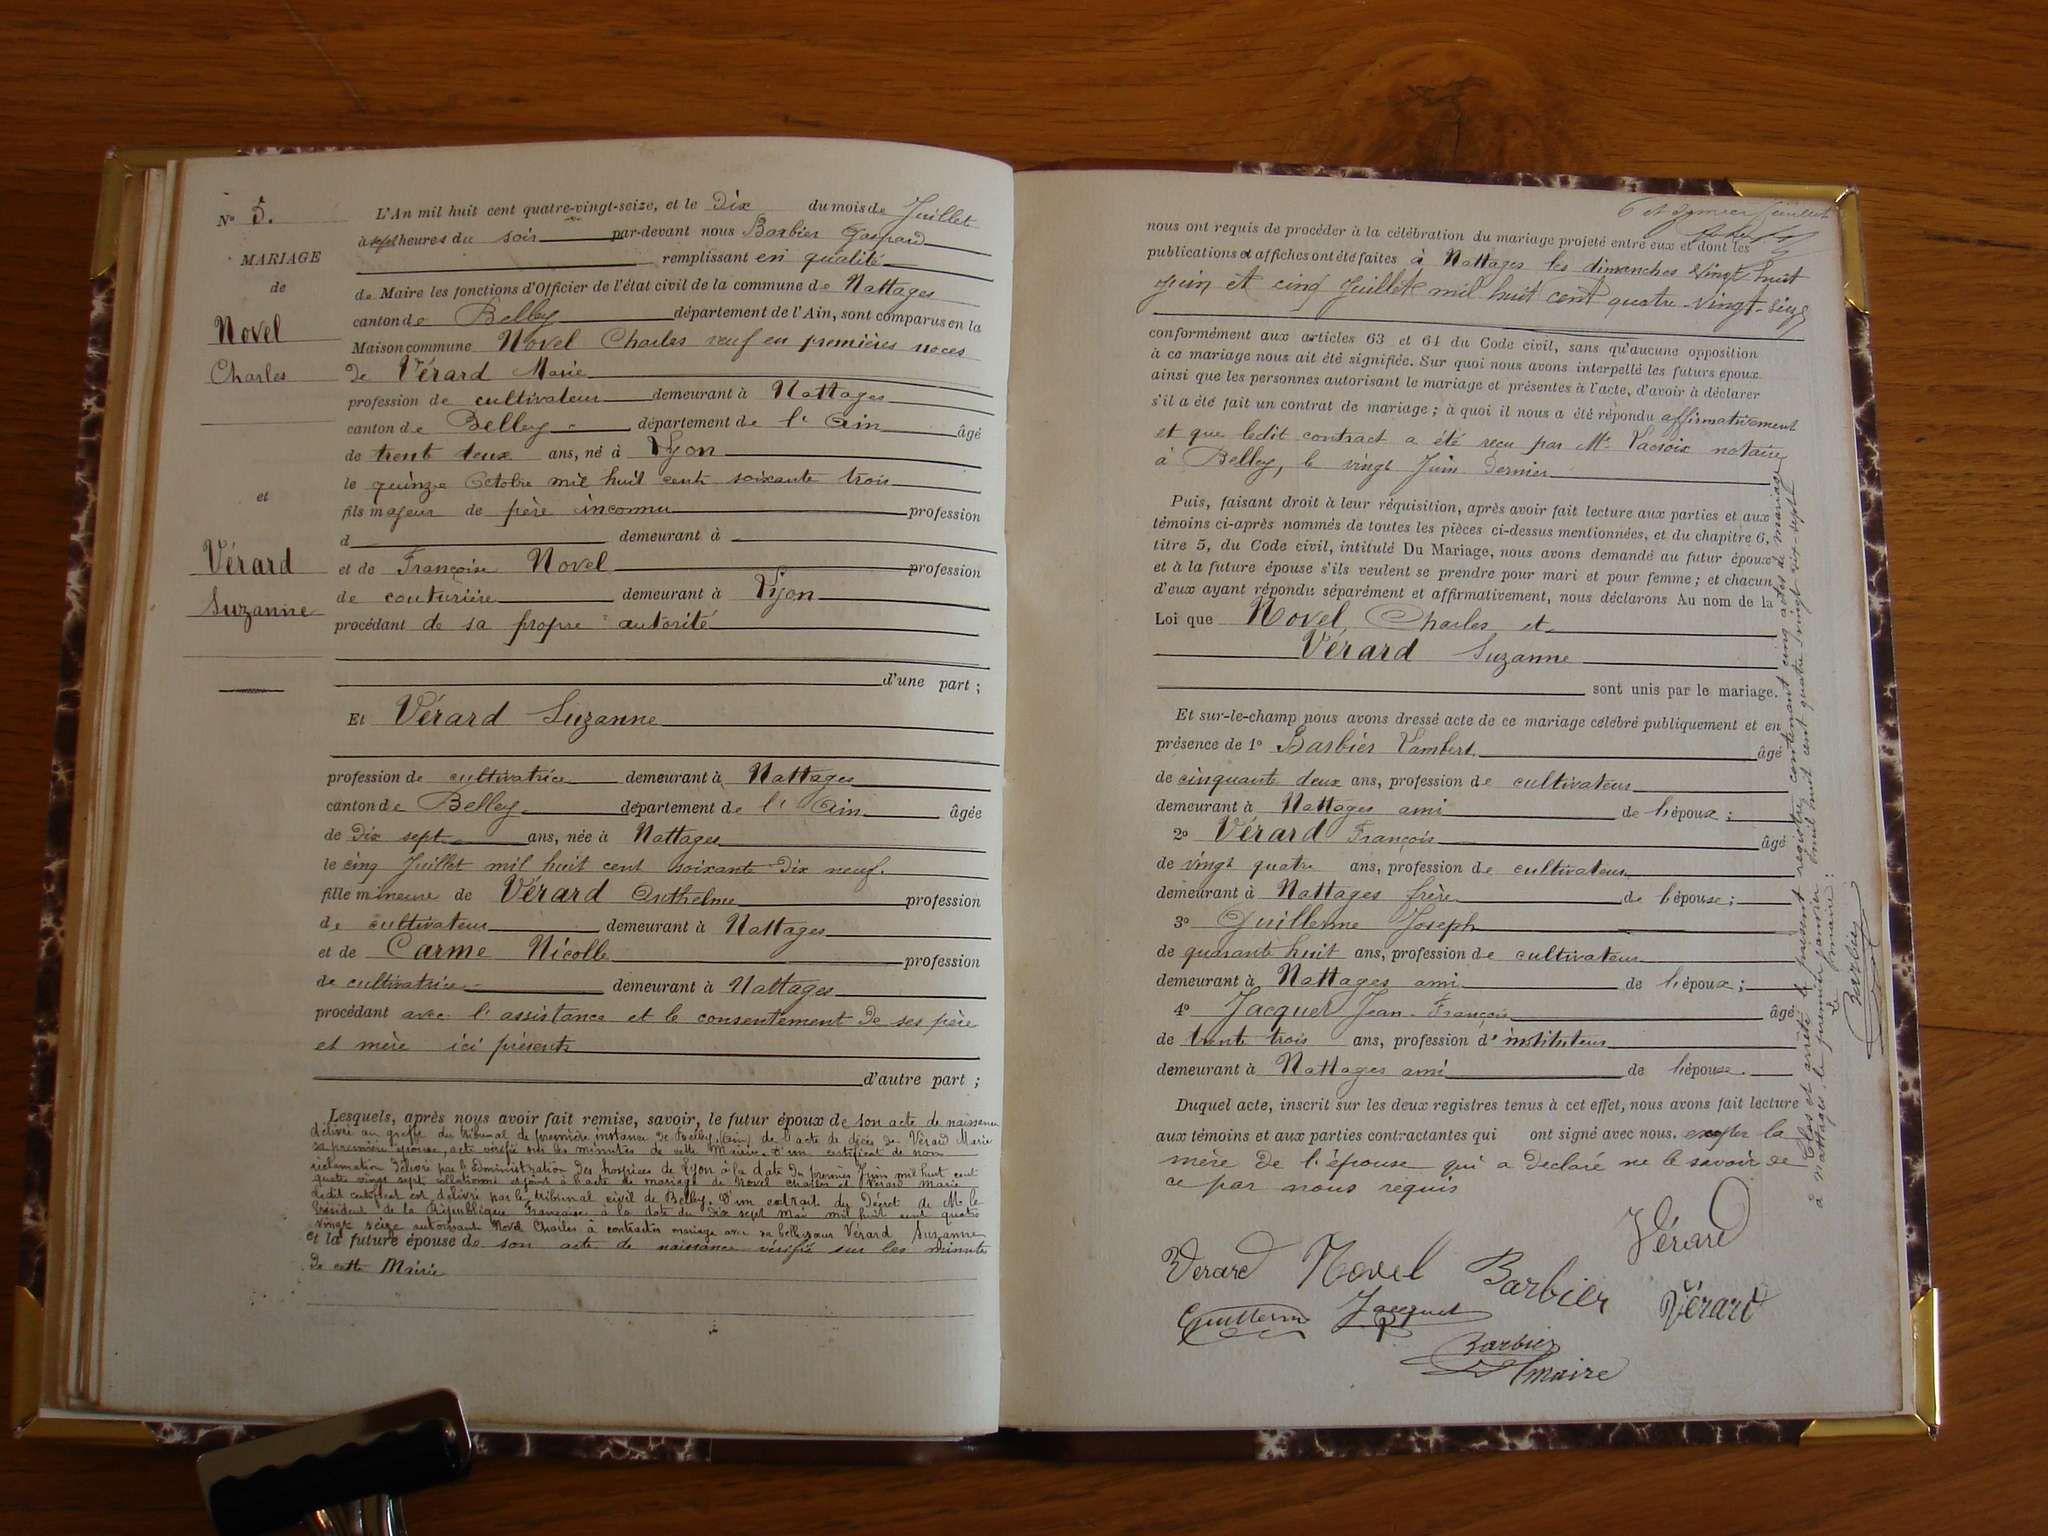 N° 5.
MARIAGE
de
Novel
Charles
et
Vérard
Suzanne
L'An mil huit cent quatre-vingt-seize, et le Dix du mois de Juillet
à sept heures du soir par-devant nous Barbier Gaspard
remplissant en qualité
de Maire les fonctions d'Officier de l'état civil de la commune de Nattages
canton de Belley département de l'Ain, sont comparus en la
Maison commune Novel Charles veuf en premières noces
de Vérard Marie
profession de cultivateur demeurant à Nattages
canton de Belley département de l'Ain âgé
de trente deux ans, né à Lyon
le quinze Octobre mil huit cent soixante trois
fils majeur de père inconnu profession
d demeurant à
et de Françoise Novel profession
de couturière demeurant à Lyon
procédant de sa propre autorité
d'une part ;
Et Vérard Suzanne
profession de cultivatrice demeurant à Nattages
canton de Belley département de l'Ain âgée
de Dix sept ans, née à Nattages
le cinq Juillet mil huit cent soixante Dix neuf.
fille mineure de Vérard Anthelme profession
de cultivateur demeurant à Nattages
et de Carme Nicolle profession
de cultivatrice demeurant à Nattages
procédant avec l'assistance et le consentement de ses père
et mère ici présents
d'autre part ;
Lesquels, après nous avoir fait remise, savoir, le futur époux de son acte de naissance
délivré au greffe du tribunal de première instance de Belley (Ain) de l'acte de décès de Vérard Marie
sa première épouse, acte vérifié sur les minutes de cette Mairie. D'un certificat de non
réclamation délivré par l'administration des hospices de Lyon à la date du premier Juin mil huit cent
quatre vingt sept collationné et joint à l'acte de mariage de Novel Charles et Vérard Marie
ledit certificat est délivré par le tribunal civil de Belley. D'un extrait du Décret de Mr le
Président de la République Française à la date du dix sept Mai mil huit cent quatre
vingt seize autorisant Novel Charles à contracter mariage avec sa belle sœur Vérard Suzanne
et la future épouse de son acte de naissance vérifié sur les minutes
De cette Mairie
6 et dernier feuillet
nous ont requis de procéder à la célébration du mariage projeté entre eux et dont les
publications et affiches ont été faites à Nattages les dimanches vingt huit
Juin et cinq Juillet mil huit cent quatre-vingt-seize
conformément aux articles 63 et 64 du Code civil, sans qu'aucune opposition
à ce mariage nous ait été signifiée. Sur quoi nous avons interpellé les futurs époux
ainsi que les personnes autorisant le mariage et présentes à l'acte, d'avoir à déclarer
s'il a été fait un contrat de mariage ; à quoi il nous a été répondu affirmativement
et que ledit contract a été reçu par Me Lacroix notaire
à Belley, le vingt Juin dernier
Puis, faisant droit à leur réquisition, après avoir fait lecture aux parties et aux
témoins ci-après nommés de toutes les pièces ci-dessus mentionnées, et du chapitre 6,
titre 5, du Code civil, intitulé Du Mariage, nous avons demandé au futur époux
et à la future épouse s'ils veulent se prendre pour mari et pour femme ; et chacun
d'eux ayant répondu séparément et affirmativement, nous déclarons Au nom de la
Loi que Novel, Charles et
Vérard Suzanne
sont unis par le mariage.
Et sur-le-champ nous avons dressé acte de ce mariage célébré publiquement et en
présence de 1° Barbier Lambert âgé
de cinquante deux ans, profession de cultivateur
demeurant à Nattages ami de l'époux ;
2° Vérard François âgé
de vingt quatre ans, profession de cultivateur
demeurant à Nattages frère de l'épouse ;
3° Guillerme Joseph
de quarante huit ans, profession de cultivateur
demeurant à Nattages ami de l'époux ;
4° Jacquet Jean-François âgé
de trente trois ans, profession d'instituteur
demeurant à Nattages ami de l'épouse.
Duquel acte, inscrit sur les deux registres tenus à cet effet, nous avons fait lecture
aux témoins et aux parties contractantes qui ont signé avec nous. excepter la
mère de l'épouse qui a déclaré ne le savoir de
ce par nous requis
Vérard
Verard Novel Barbier Vérard
Guillerme Jacquet
Barbier
maire
Clos et arrêté le présent registre contenant cinq actes de mariage
à Nattages le premier janvier mil huit cent quatre vingt dix-sept
Le maire :
Barbier